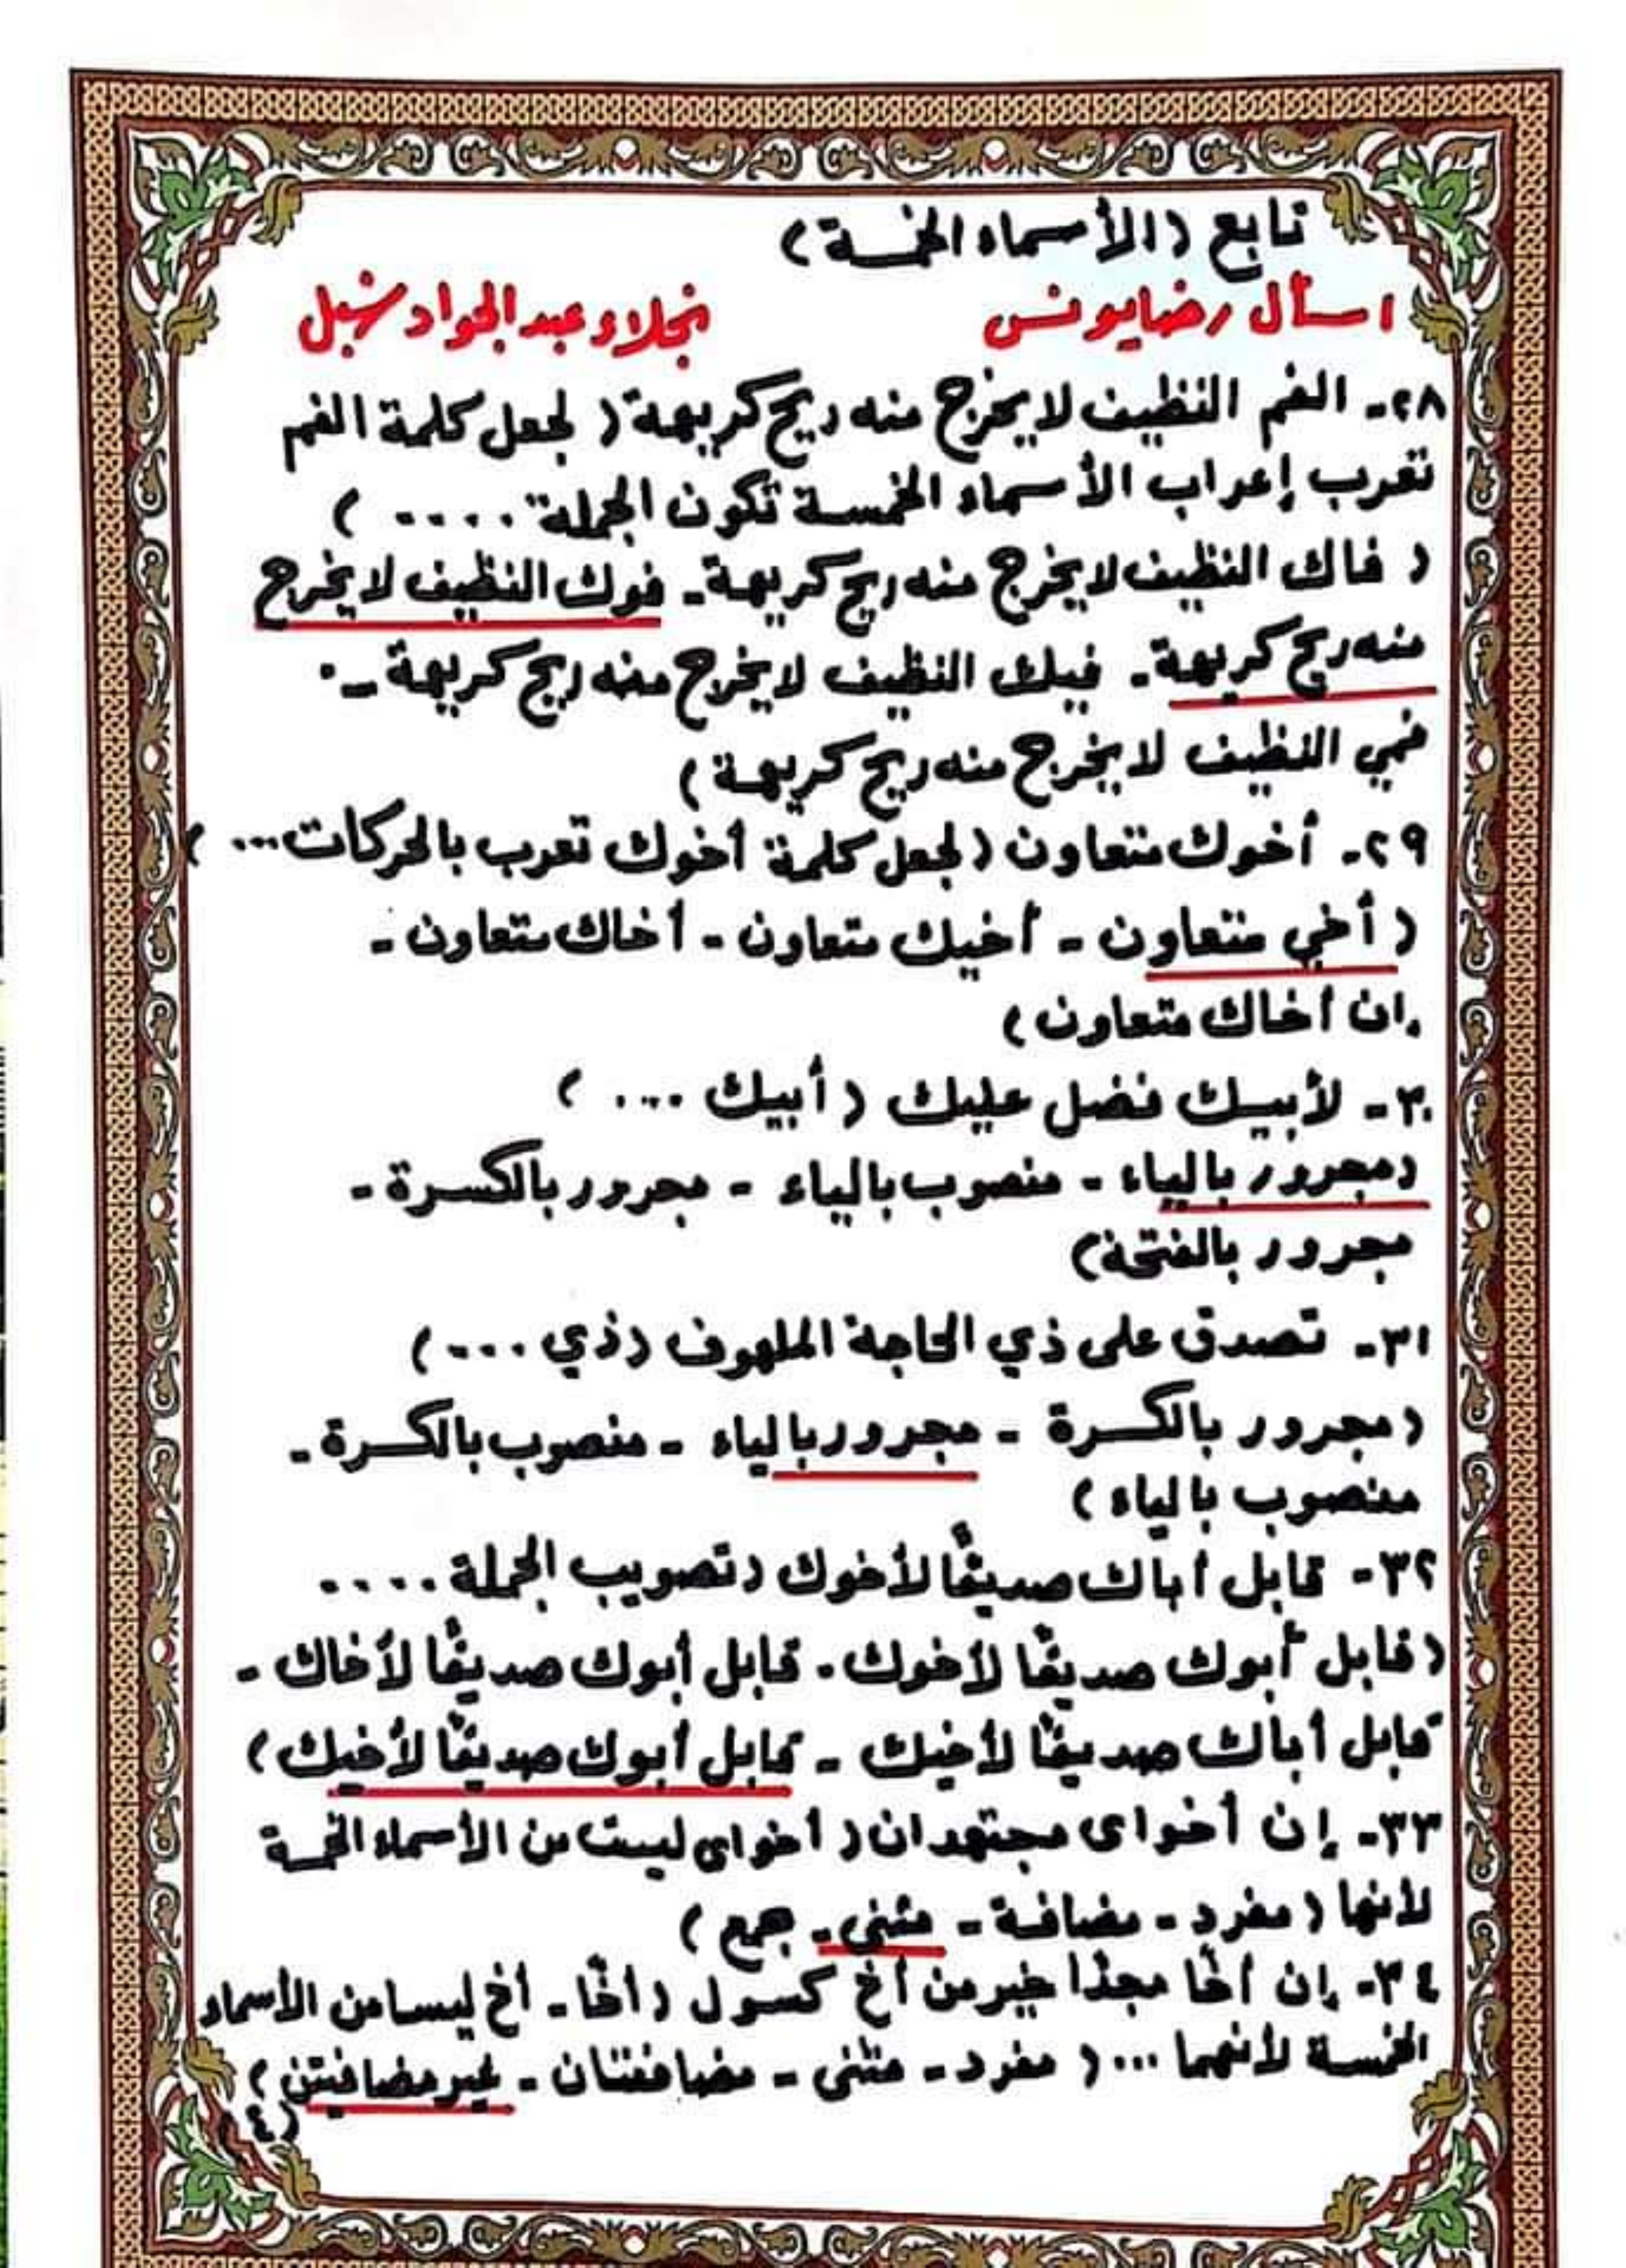 تابع (الأسماء الخمسة)
اسأل رضا يونس نجلاء عبد الجواد شبل
٢٨- الفم النظيف لا يخرج منه ريح كريهة ( لجعل كلمة الفم
تعرب إعراب الأسماء الخمسة تكون الجملة .... )
( فاك النظيف لا يخرج منه ريح كريهة - فوك النظيف لا يخرج
منه ريح كريهة - فيك النظيف لا يخرج منه ريح كريهة -
فمي النظيف لا يخرج منه ريح كريهة )
٢٩- أخوك متعاون ( لجعل كلمة أخوك تعرب بالحركات ... )
( أخي متعاون - أخيك متعاون - أخاك متعاون -
ان أخاك متعاون )
٣٠- لأبيك فضل عليك ( أبيك .... )
( مجرور بالياء - منصوب بالياء - مجرور بالكسرة -
مجرور بالفتحة )
٣١- تصدق على ذي الحاجة الملهوف ( ذي .... )
( مجرور بالكسرة - مجرور بالياء - منصوب بالكسرة -
منصوب بالياء )
٣٢- قابل أباك صديقًا لأخوك ( تصويب الجملة ....
( قابل أبوك صديقًا لأخوك - قابل أبوك صديقًا لأخاك -
قابل أباك صديقًا لأخيك - قابل أبوك صديقًا لأخيك )
٣٣- إن أخواى مجتهدان ( أخواى ليست من الأسماء الخمسة
لأنها ( مفرد - مضافة - مثنى - جمع )
٣٤- إن أخًا مجدًا خير من أخ كسول ( أخًا - أخ ليسا من الأسماء
الخمسة لأنهما ... ( مفرد - مثنى - مضافتان - غير مضافتين )
(٤)